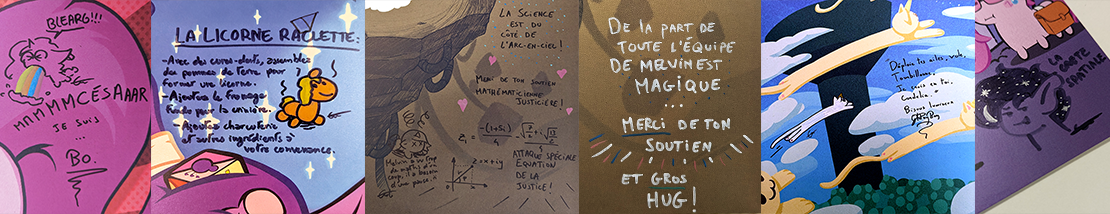 BLEARG!!!
MMMMCÉSAAAR
JE SUIS
...
BO.
LA LICORNE RACLETTE:
-Avec des cures-dents, assemblez
des pommes de terre pour
former une licorne.
-Ajoutez le fromage
fondu pour la crinière.
-Ajoutez charcuterie
et autres ingrédients à
votre convenance.
LA SCIENCE
EST DU
CÔTÉ DE
L'ARC-EN-CIEL!
MERCI DE TON SOUTIEN
MATHÉMATICIENNE
JUSTICIÈRE!
ATTAQUE SPÉCIALE
EQUATION
DE LA
JUSTICE!
Z=x+iy
Melvin a eu trop
de maths d'un
coup, il a besoin
d'une pause.
DE LA PART DE
TOUTE L'ÉQUIPE
DE MELVIN EST
MAGIQUE
...
MERCI DE TON
SOUTIEN
ET GROS
HUG!
Déploie tes ailes, vole,
Tourbillonne.
Je crois en toi,
Bisous
LA
SPATIALE